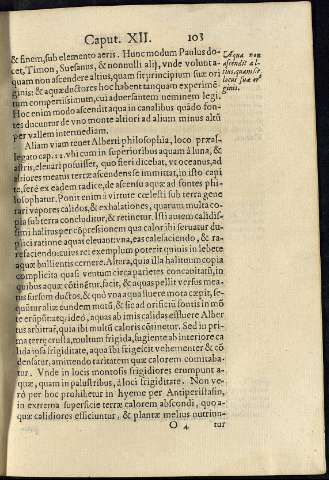 Caput. XII. 103
& finem, sub elemento aeris. Hunc modum Paulus do-
cet, Timon, Suesanus, & nonnulli alij, vnde volunt a-
quam non ascendere altius, quam sit principium suæ ori
ginis: & aquæ ductores hoc habent tanquam experimē-
tum compertissimum, cui aduersantem neminem legi.
Hoc enim modo ascendit aqua in canalibus quādo fon-
tes ducuntur de vno monte altiori ad alium minus altū
per vallem intermediam.
Aliam viam tenet Alberti philosophia, loco præal-
legato cap. 11. vbi cum in superioribus aquam à luna, &
astris, eleuari posuisset, quo fieri dicebat, vt oceanus, ad
altiores meatus terræ ascendens se immittat, in isto capi
te, ferè ex eadem radice, de ascensu aquæ ad fontes phi-
losophatur. Ponit enim à virtute cœlesti sub terra gene
rari vapores calidos, & exhalationes, quarum multa co-
pia sub terra concluditur, & retinetur. Isti autem calidis-
simi halitus per cōpressionem qua calor ibi seruatur du-
plici ratione aquas eleuant vna, eas calefaciendo, & ra-
refaciendo: cuius rei exemplum poterit quiuis in lebete
aquæ bullientis cernere. Altera, quia illa halituum copia
complicita quasi ventum circa parietes concauitatū, in
quibus aquæ cōtinētur, facit, & aquas pellit versus mea-
tus sursum ductos, & quò vna aqua fluere mota cœpit, se-
quūtur aliæ eundem motū, & sic ad orificiū fontis in mō
te erūpūt: atq; ideò, aquas ab imis calidas effluere Alber
tus arbitrat, quia ibi multū caloris cōtinetur. Sed in pri-
ma terræ crusta, multum frigida, fugiente ab interiore ca
lida ipsa frigiditate, aqua ibi frigescit vehementer & cō
densatur, amittendo raritatem quæ calorem comitaba-
tur. Vnde in locis montosis frigidiores erumpunt a-
quæ, quam in palustribus, à loci frigiditate. Non ve-
rò per hoc prohibetur in hyeme per Antiperistasin,
in extrema superficie terræ calorem abscondi, quo a-
quæ calidiores efficiuntur, & plantæ melius nutriun-
O 4 tur
Aqua non
ascendit al-
tius, quam sit
locus suæ o-
riginis.